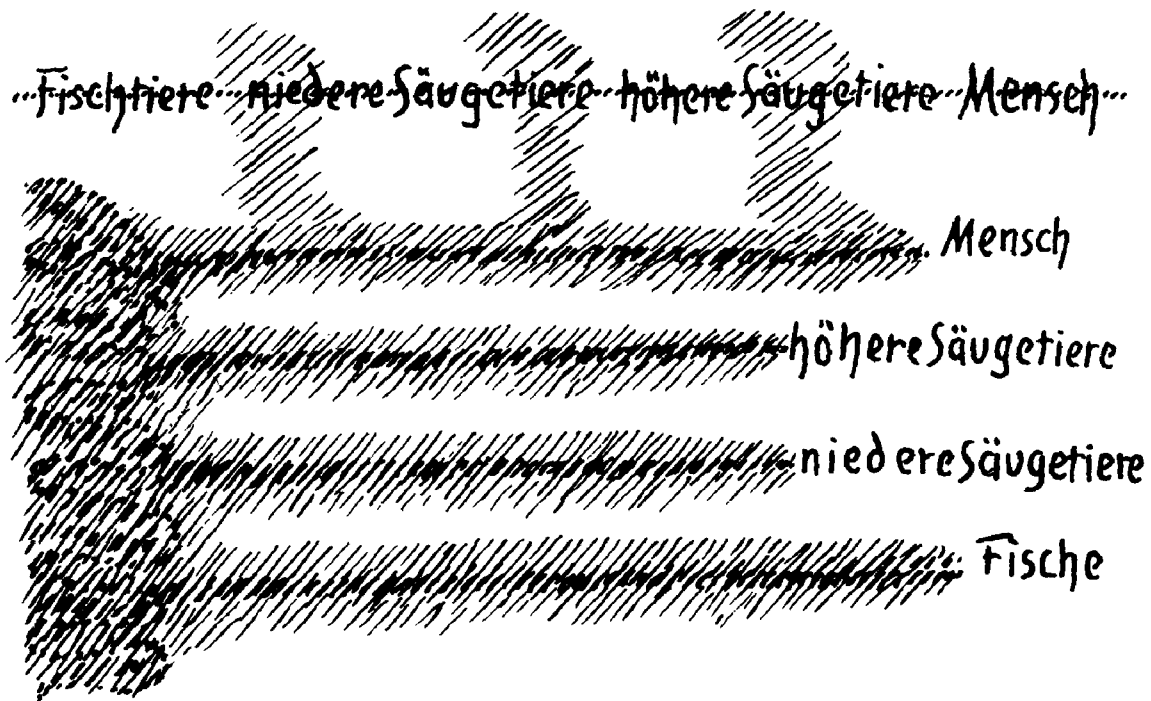 ...Fischtiere...niedere Säugetiere...höhere Säugetiere...Mensch...
Mensch
höhere Säugetiere
niedere Säugetiere
Fische